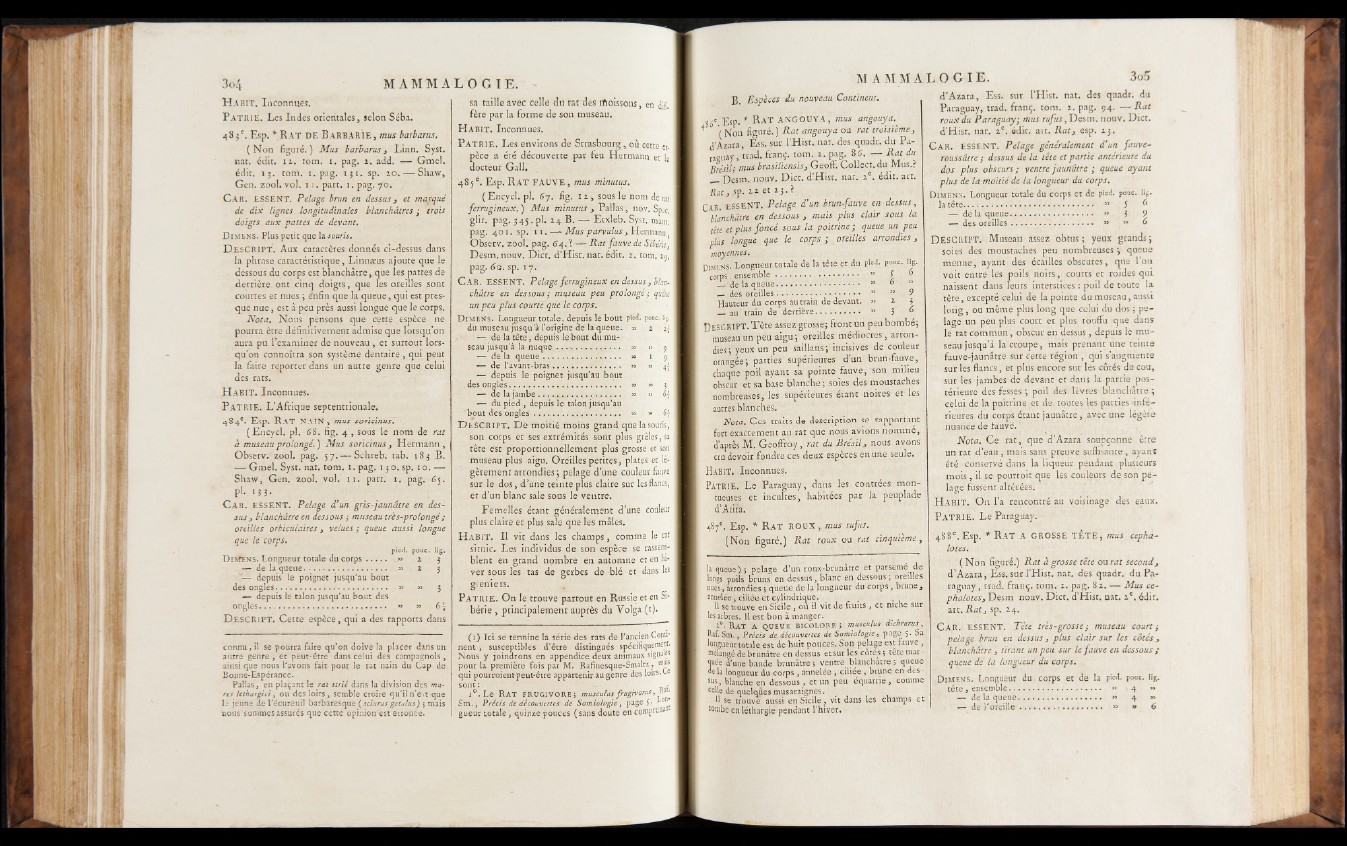 304 MAMMALOGIE.
HABIT. Inconnues.
PATRIE. Les Indes orientales, selon Séba.
483e. Esp. * RAT DE BARBARIE, mus barbarus.
(Non figuré.) Mus barbarus, Linn. Syst.
nat. édit. 12. tom. 1. pag. 2. add. — Gmel.
édit. 13. tom. 1. pag. 131. sp. 20. — Shaw,
Gen. zool. vol. 11. part. 1. pag. 70.
CAR. ESSENT. Pelage brun en dessus, et marqué
de dix lignes longitudinales blanchâtres; trois
doigts aux pattes de devant.
DIMENS. Plus petit que la souris.
DESCRIPT. Aux caractères donnés ci-dessus dans
la phrase caractéristique, Linnæus ajoute que le
dessous du corps est blanchâtre, que les pattes de
derrière ont cinq doigts, que les oreilles sont
courtes et nues; enfin que la queue, qui est pres-
que nue, est à peu près aussi longue que le corps.
Nota. Nous pensons que cette espèce ne
pourra être définitivement admise que lorsqu'on
aura pu l'examiner de nouveau, et surtout lors-
qu'on connoîtra son système dentaire, qui peut
la faire reporter dans un autre genre que celui
des rats.
HABIT. Inconnues.
PATRIE. L'Afrique septentrionale.
484e. Esp. RAT NAIN, mus soricinus.
(Encycl. pl. 68. fig. 4, sous le nom de rat
à museau prolongé.) Mus soricinus, Hermann,
Observ. zool. pag. 57. — Schreb. tab. 183 B.
— Gmel. Syst. nat. tom. 1. pag. 130. sp. 10. —
Shaw, Gen. zool. vol. 11. part. 1. pag. 65.
pl. 133.
CAR. ESSENT. Pelage d'un gris-jaunâtre en des-
sus, blanchâtre en dessous; museau très-prolongé;
oreilles orbiculaires, velues; queue aussi longue
que le corps.
pied. pouc. lig.
DIMENS. Longueur totale du corps ..... » 2 3
— de la queue.................. » 2 3
— depuis le poignet jusqu'au bout
des ongles........................ » » 3
— depuis le talon jusqu'au bout des
ongles........................... » » 6½
DESCRIPT. Cette espèce, qui a des rapports dans
connu, il se pourra faire qu'on doive la placer dans un
autre genre, et peut-être dans celui des campagnols,
ainsi que nous l'avons fait pour le rat nain du Cap de
Bonne-Espérance.
Pallas, en plaçant le rat strié dans la division des mu-
res lethargici, ou des loirs, semble croire qu'il n'est que
le jeune de l'écureuil barbaresque (sciurus getulus); mais
nous sommes assurés que cette opinion est erronée.
sa taille avec celle du rat des moissons, en dif-
fère par la forme de son museau.
HABIT. Inconnues.
PATRIE. Les environs de Strasbourg, où cette es-
pèce a été découverte par feu Hermann et le
docteur Gall.
485e. Esp. RAT FAUVE, mus minutus.
(Encycl. pl. 67. fig. 12, sous le nom de rat
ferrugineux.) Mus minutus, Pallas, nov. Spec.
glir. pag. 345. pl. 24 B. — Erxleb. Syst. mam.
pag. 401. sp. 11. — Mus parvulus, Hermann,
Observ. zool. pag. 64.? — Rat fauve de Sibérie,
Desm. nouv. Dict. d'Hist. nat. édit. 2. tom. 29,
pag. 62. sp. 17.
CAR. ESSENT. Pelage ferrugineux en dessus, blan-
châtre en dessous; museau peu prolongé; queue
un peu plus courte que le corps.
DIMENS. Longueur totale, depuis le bout pied. pouc. lig.
du museau jusqu'à l'origine de la queue. » 2 2½
— de la tête, depuis le bout du mu-
seau jusqu'à la nuque .............. » » 9
— de la queue .................. » 1 9
— de l'avant-bras............... » » 4½
— depuis le poignet jusqu'au bout
des ongles........................ » » 3
— de la jambe.................. » » 6½
— du pied, depuis le talon jusqu'au
bout des ongles ................... » » 6½
DESCRIPT. De moitié moins grand que la souris,
son corps et ses extrémités sont plus grêles, sa
tête est proportionnellement plus grosse et son
museau plus aigu. Oreilles petites, plates et lé-
gèrement arrondies; pelage d'une couleur fauve
sur le dos, d'une teinte plus claire sur les flancs,
et d'un blanc sale sous le ventre.
Femelles étant généralement d'une couleur
plus claire et plus sale que les mâles.
HABIT. Il vit dans les champs, comme le rat
sitnic. Les individus de son espèce se rassem-
blent en grand nombre en automne et en hi-
ver sous les tas de gerbes de blé et dans les
greniers.
PATRIE. On le trouve partout en Russie et en Si-
bérie, principalement auprès du Volga (1).
(1) Ici se termine la série des rats de l'ancien Conti-
nent, susceptibles d'être distingués spécifiquement.
Nous y joindrons en appendice deux animaux signalés
pour la première fois par M. Rafinesque-Smaltz, mais
qui pourroient peut-être appartenir au genre des loirs. Ce
sont:
1°. Le RAT FRUGIVORE; musculus frugivorus, Raf.
Sm., Précis de découvertes de Somiologie, page 5. Lon-
gueur totale, quinze pouces (sans doute en comprenant
MAMMALOGIE. 305
B. Espèces du nouveau Continent.
486e. Esp. * RAT ANGOUYA, mus angouya.
(Non figuré.) Rat angouya ou rat troisième,
d'Azara, Ess. sur l'Hist. nat. des quadr. du Pa-
raguay, trad. franç. tom. 2. pag. 86. — Rat du
Brésil; mus brasiliensis, Geoff. Collect. du Mus.?
— Desm. nouv. Dict. d'Hist. nat. 2e. édit. art.
Rat, sp. 22 et 23.?
CAR. ESSENT. Pelage d'un brun-fauve en dessus,
blanchâtre en dessous, mais plus clair sous la
tête et plus foncé sous la poitrine; queue un peu
plus longue que le corps; oreilles arrondies,
moyennes.
DIMENS. Longueur totale de la tête et du pied. pouc. lig.
corps, ensemble .................. » 5 6
— de la queue.................. » 6 »
— des oreilles.................. » » 9
Hauteur du corps au train de devant. » 2 3
— au train de derrière........... » 3 6
DESCRIPT. Tête assez grosse; front un peu bombé;
museau un peu aigu; oreilles médiocres, arron-
dies; yeux un peu saillans; incisives de couleur
orangée; parties supérieures d'un brun-fauve,
chaque poil ayant sa pointe fauve, son milieu
obscur et sa base blanche; soies des moustaches
nombreuses, les supérieures étant noires et les
autres blanches.
Nota. Ces traits de description se rapportant
fort exactement au rat que nous avions nommé,
d'après M. Geoffroy, rat du Brésil, nous avons
cru devoir fondre ces deux espèces en une seule.
HABIT. Inconnues.
PATRIE. Le Paraguay, dans les contrées mon-
tueuses et incultes, habitées par la peuplade
d'Atira.
487e. Esp. * RAT ROUX, mus rufus.
(Non figuré.) Rat roux ou rat cinquième,
la queue); pelage d'un roux-brunâtre et parsemé de
longs poils bruns en dessus, blanc en dessous; oreilles
nues, arrondies; queue de la longueur du corps, brune,
annelée, ciliée et cylindrique.
Il se trouve en Sicile, où il vit de fruits, et niche sur
les arbres. Il est bon à manger.
2°. RAT A QUEUE BICOLORE; musculus dichrurus,
Raf. Sm., Précis de découvertes de Somiologie, page 5. Sa
longueur totale est de huit pouces. Son pelage est fauve,
mélangé de brunâtre en dessus et sur les côtés; tête mar-
quée d'une bande brunâtre; ventre blanchâtre; queue
de la longueur du corps, annelée, ciliée, brune en des-
sus, blanche en dessous, et un peu équarrie, comme
celle de quelques musaraignes.
Il se trouve aussi en Sicile, vit dans les champs et
tombe en léthargie pendant l'hiver.
d'Azara, Ess. sur l'Hist. nat. des quadr. du
Paraguay, trad. franç. tom. 2. pag. 94. — Rat
roux du Paraguay; mus rufus, Desm. nouv. Dict.
d'Hist. nat. 2e. édit. art. Rat, esp. 25.
CAR. ESSENT. Pelage généralement d'un fauve-
roussâtre; dessus de la tête et partie antérieure du
dos plus obscurs; ventre jaunâtre; queue ayant
plus de la moitié de la longueur du corps.
DIMENS. Longueur totale du corps et de pied. pouc. lig.
la tête........................... » 5 6
— de la queue.................. » 3 9
— des oreilles .................. » » 6
DESCRIPT. Museau assez obtus; yeux grands;
soies des moustaches peu nombreuses; queue
menne, ayant des écailles obscures, que l'on
voit entre les poils noirs, courts et roides qui
naissent dans leurs interstices: poil de toute la
tête, excepté celui de la pointe du museau, aussi
long, ou même plus long que celui du dos; pe-
lage un peu plus court et plus touffu que dans
le rat commun, obscur en dessus, depuis le mu-
seau jusqu'à la croupe, mais prenant une teinte
fauve-jaunâtre sur cette région, qui s'augmente
sur les flancs, et plus encore sur les côtés du cou,
sur les jambes de devant et dans la partie pos-
térieure des fesses; poil des lèvres blanchâtre;
celui de la poitrine et de toutes les parties infé-
rieures du corps étant jaunâtre, avec une légère
nuance de fauve.
Nota. Ce rat, que d'Azara soupçonne être
un rat d'eau, mais sans preuve suffisante, ayant
été conservé dans la liqueur pendant plusieurs
mois, il se pourroit que les couleurs de son pe-
lage fussent altérées.
HABIT. On l'a rencontré au voisinage des eaux.
PATRIE. Le Paraguay.
488e. Esp. * RAT A GROSSE TÊTE, mus cepha-
lotes.
(Non figuré.) Rat à grosse tête ou rat second,
d'Azara, Ess. sur l'Hist. nat. des quadr. du Pa-
raguay, trad. franç. tom. 2. pag. 82. — Mus ce-
phalotes, Desm. nouv. Dict. d'Hist. nat. 2e. édit.
art. Rat, sp. 24.
CAR. ESSENT. Tête très-grosse; museau court;
pelage brun en dessus, plus clair sur les côtés,
blanchâtre, tirant un peu sur le fauve en dessous;
queue de la longueur du corps.
DIMENS. Longueur du corps et de la pied. pouc. lig.
tête, ensemble.................... » 4 »
— de la queue.................. » 4 »
— de l'oreille .................. » » 6